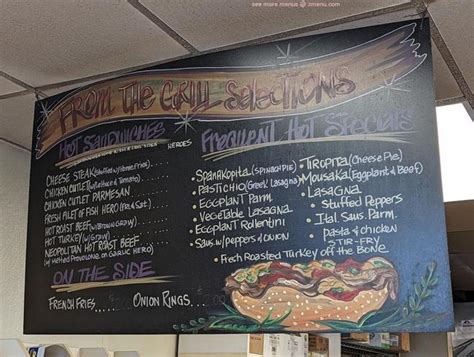 see more menus @ zmenu.com
FROM THE GRILL SELECTIONS
HOT SANDWICHES
HEROES
CHEESE STEAK
CHICKEN CUTLET
CHICKEN CUTLET PARMESAN
FRESH FILET OF FISH HERO
HOT ROAST BEEF (W/BROWN GRAVY)
HOT TURKEY (W/GRAVY)
NEOPOLITAN HOT ROAST BEEF
(W/ MELTED PROVOLONE, ON GARLIC HERO)
ON THE SIDE
FRENCH FRIES
ONION RINGS
FREQUENT HOT SPECIALS
• SPANAKOPITA (SPINACH PIE)
• PASTICHIO (GREEK LASAGNA)
• EGGPLANT PARM
• VEGETABLE LASAGNA
• EGGPLANT ROLLENTINI
• SAUS. W/ PEPPERS & ONION
• TIROPITA (CHEESE PIE)
• MOUSAKA (EGGPLANT & BEEF)
• LASAGNA
• STUFFED PEPPERS
• ITAL. SAUS. PARM.
• PASTA & CHICKEN
STIR-FRY
• FRESH ROASTED TURKEY OFF THE BONE.